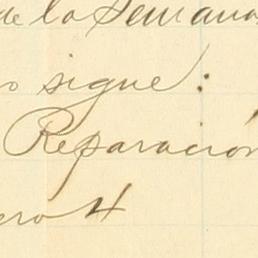 de la Semana
sigue:
Reparación
ero 4